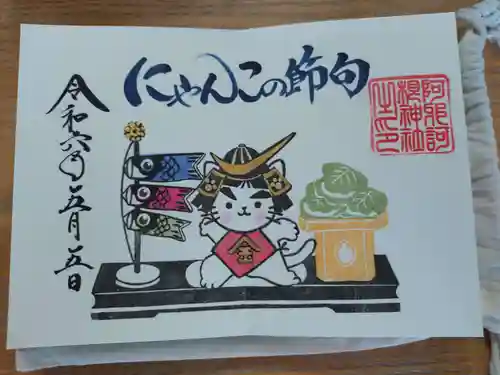 にゃんこの節句
令和六年五月五日
阿邪訶
根神社
之印
金